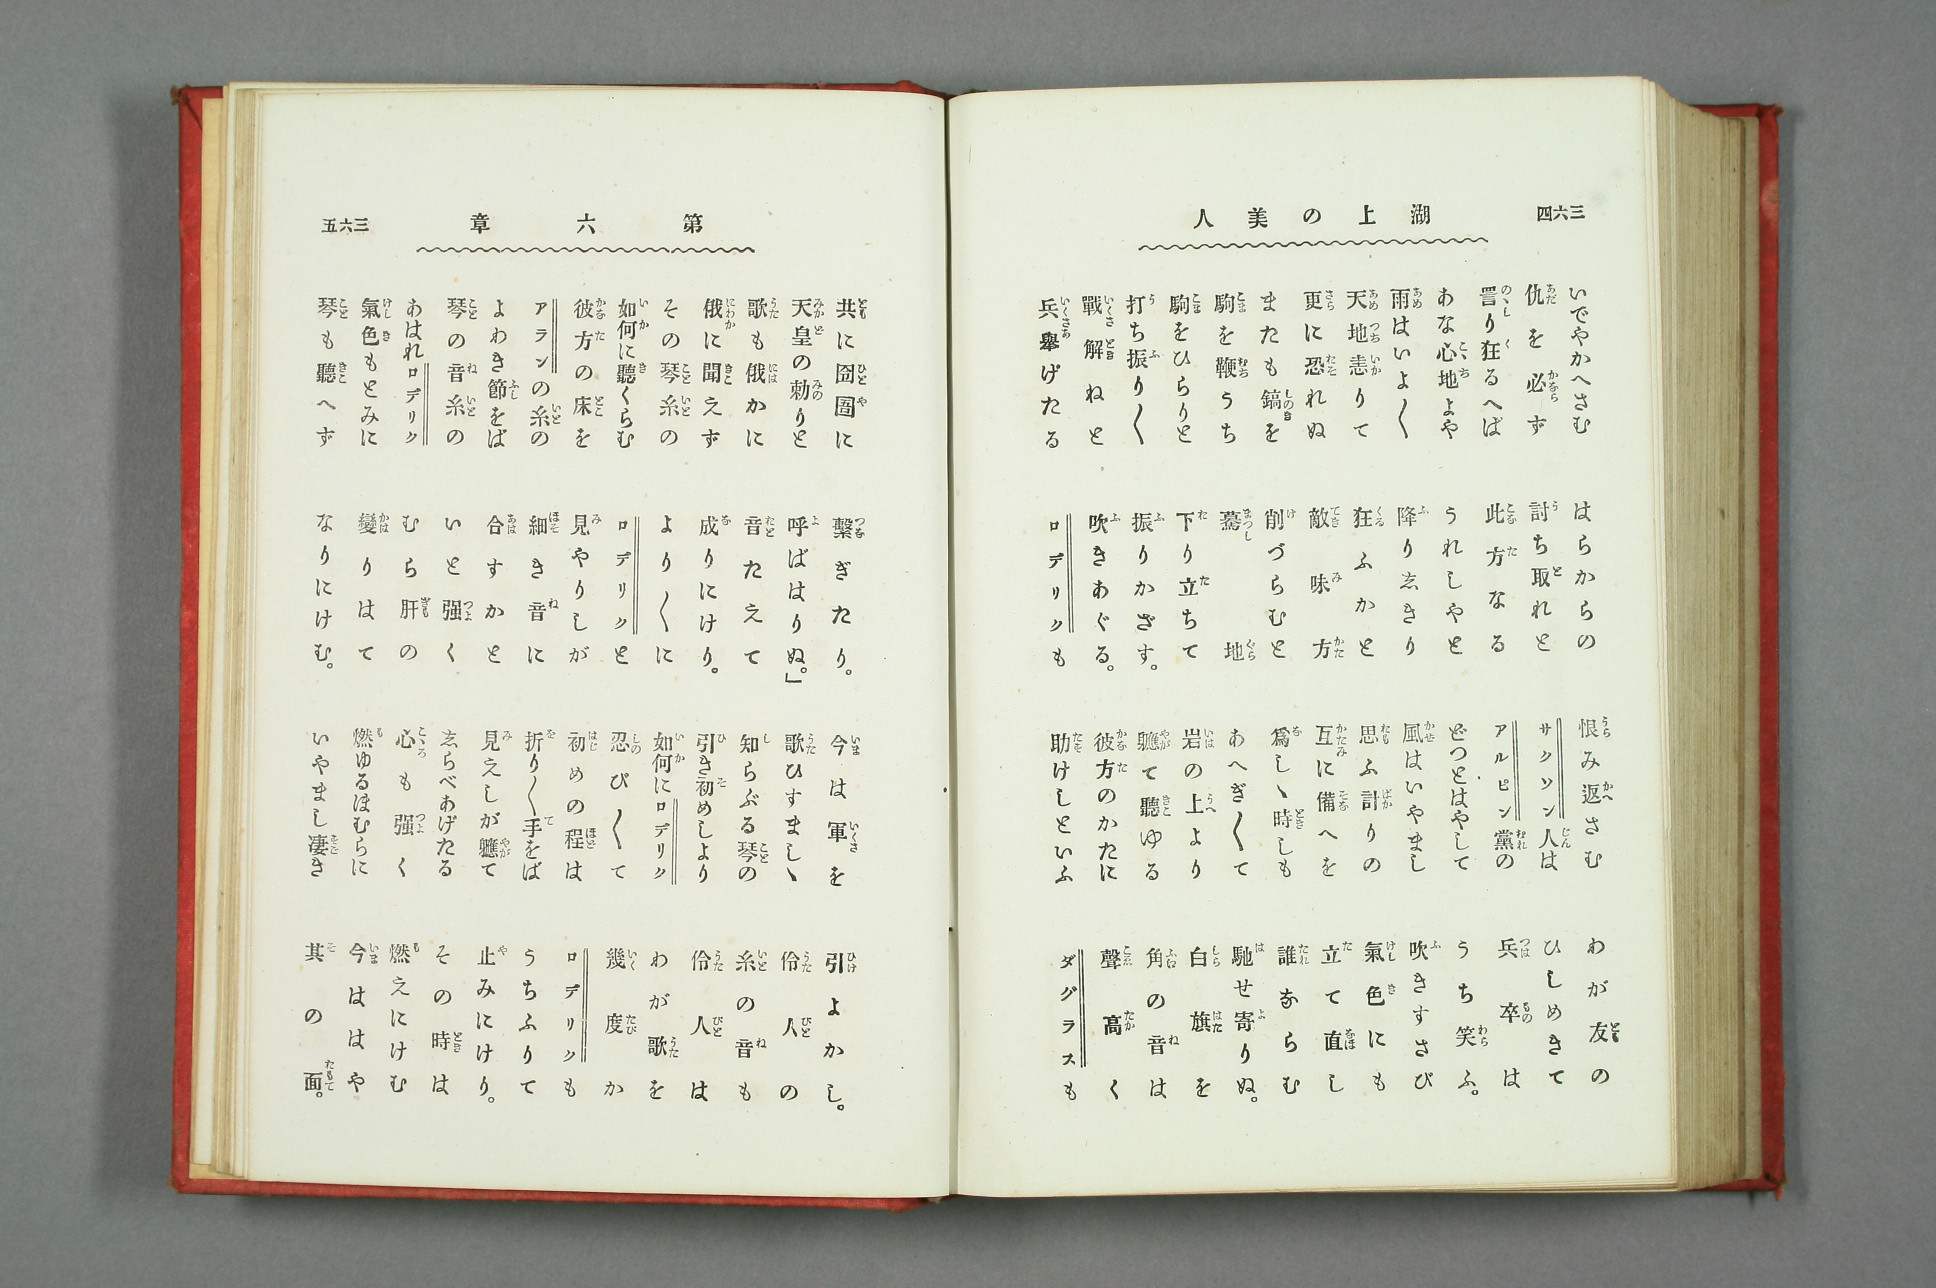 三六四
湖上の美人
いでやかへさむ はらからの 恨み返さむ わが友の
仇を必ず 討ち取れと サクソン人は ひしめきて
詈り狂るへば 此方なる アルピン黨の 兵卒は
あな心地よや うれしやと どつとはやして うち笑ふ。
雨はいよ〱 降りしきり 風はいやまし 吹きすさび
天地恚りて 狂ふかと 思ふ計りの 氣色にも
更に恐れぬ 敵味方 互に備へを 立て直し
またも鎬を 削づらむと 爲しゝ時しも 誰ならむ
駒を鞭うち 驀地 あへぎ〱て 馳せ寄りぬ。
駒をひらりと 下り立ちて 岩の上より 白旗を
打ち振り〱 振りかざす。 軈て聽ゆる 角の音は
戰解ねと 吹きあぐる。 彼方のかたに 聲高く
兵擧げたる ロデリクも 助けしといふ ダグラスも
第六章
三六五
共に囹圄に 繫ぎたり。 今は軍を 引よかし。
天皇の勅りと 呼ばはりぬ。」 歌ひすましゝ 伶人の
歌も俄かに 音たえて 知らぶる琴の 糸の音も
俄に聞えず 成りにけり。 引き初めしより 伶人は
その琴糸の より〱に 如何にロデリク わが歌を
如何に聽くらむ ロデリクと 忍び〱て 幾度か
彼方の床を 見やりしが 初めの程は ロデリクも
アランの糸の 細き音に 折り〱手をば うちふりて
よわき節をば 合すかと 見えしが軈て 止みにけり。
琴の音糸の いと强く しらべあげたる その時は
あはれロデリク むら肝の 心も强く 燃えにけむ
氣色もとみに 變りはて 燃ゆるほむらに 今ははや
琴も聽へず なりにけむ。 いやまし凄き 其の面。